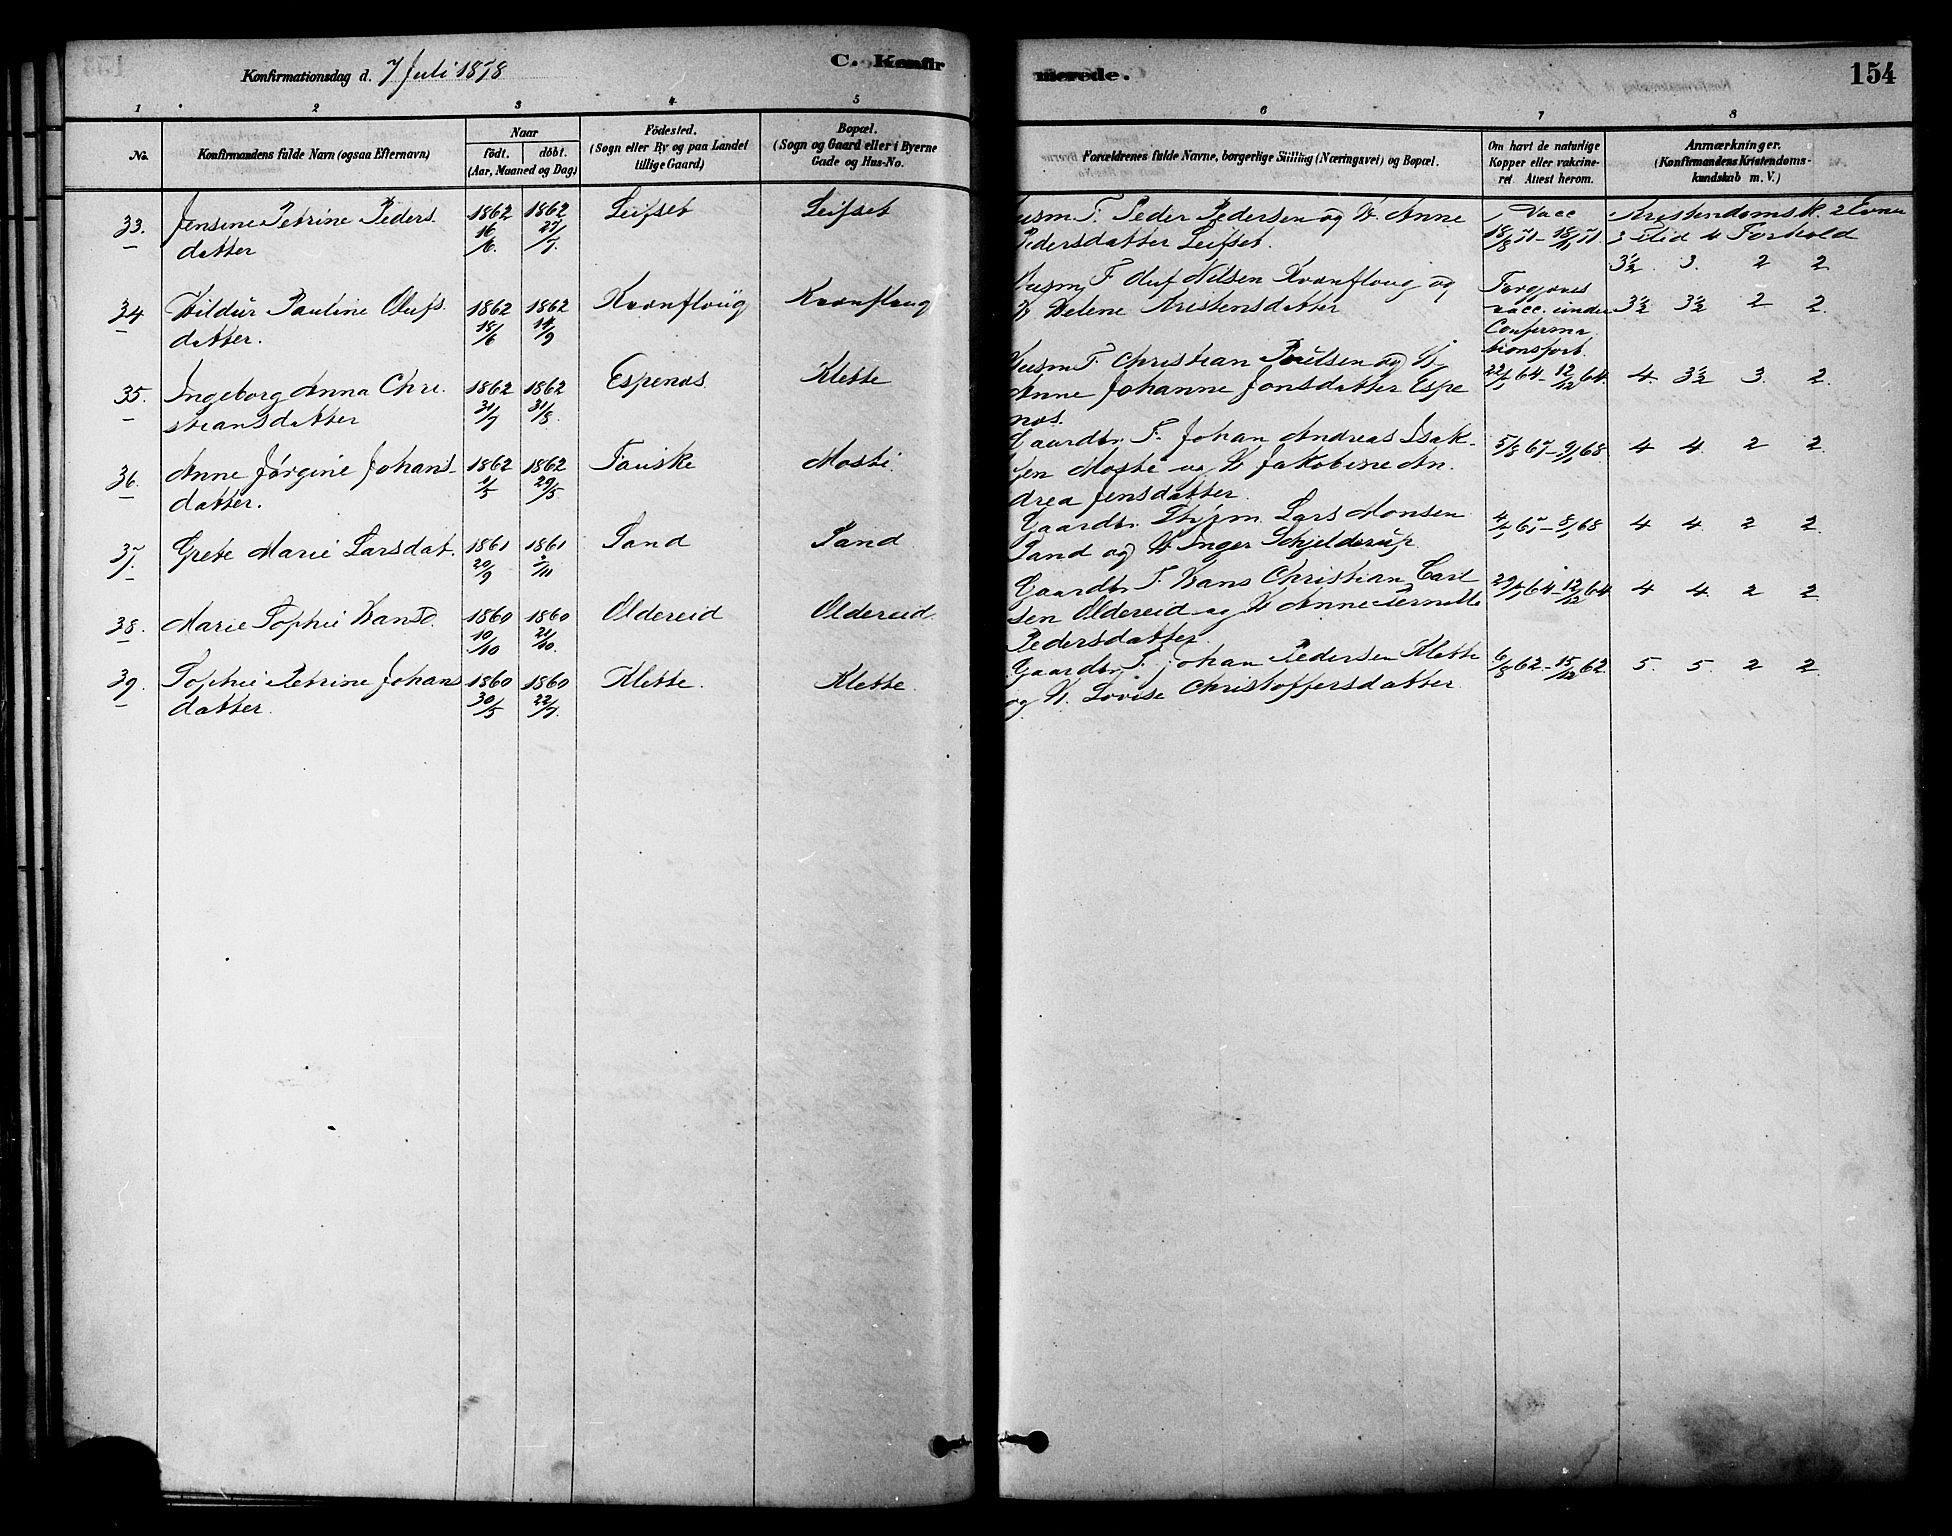 Konfirmationsdag d. 7 Juli 1878
C. Konfirmerede.
154
1 2 3 4 5 6 7 8
No.
Konfirmandens fulde Navn (ogsaa Efternavn)
Naar
födt. döbt.
(Aar, Maaned og Dag)
Födested.
(Sogn eller By og paa Landet
tillige Gaard)
Bopæl.
(Sogn og Gaard eller i Byerne
Gade og Hus-No.
Forældrenes fulde Navne, borgerlige Stilling (Næringsvei) og Bopæl.
Om havt de naturlige
Kopper eller vakcine-
ret. Attest herom.
Anmærkninger.
(Konfirmandens Kristendoms-
kundskab m. V.)
33. Jensine Petrine Peders 1862 1862 Leifset Leifset
datter 16/6. 27/7.
Husm F. Peder Pedersen og H. Anne
Pedersdatter Leifset.
Vacc
Kristendomsk. 2 Evner
3 Flid 4 Forhold
3½ 3. 2 2
34 Hildur Pauline Olufs 1862 1862 Kvænfloug Kvænfloug
datter. 18/6 14/9
Husm F Oluf Nilsen Kvænfloug og
H Helene Kristensdatter
vacc. under
Confirma
tionsforb.
3½ 3½ 2 2.
35. Ingeborg Anna Chri 1862 1862 Espenæs Klette
stiansdatter 31/7 31/8
Husm F Christian Poulsen og H.
Anne Johanne Jonsdatter Espe
næs.
22/7 64 - 12/12 64. 4. 3½ 3. 2.
36. Anne Jørgine Johans- 1862 1862 Fauske Mosti
datter. 1/5 29/5
Gaardbr. F. Johan Andreas Isak-
sen Mosti og H Jakobine An
drea Jensdatter.
5/8 67 - 9/1 68. 4 4 2 2
37. Grete Marie Larsdat. 1861 1861 Sand Sand
20/9
Gaardbr. Lars Monsen
Sand og H Inger Schjelderup
68 4 4. 2 2
38. Marie Sophie Hansd. 1860 1860 Oldereid Oldereid.
10/10 21/10.
Gaardbr F. Hans Christian Carl
sen Oldereid og H Anne Pernille
Pedersdatter.
29/7 64 - 12/12 64 4 4. 2 2
39. Sophie Petrine Johans 1860 1860 Klette. Klette.
datter. 30/5 22/7.
Gaardbr F. Johan Pedersen Klette
og H. Lovise Christoffersdatter
6/8 62 - 15/12 62. 5. 5 2 2.